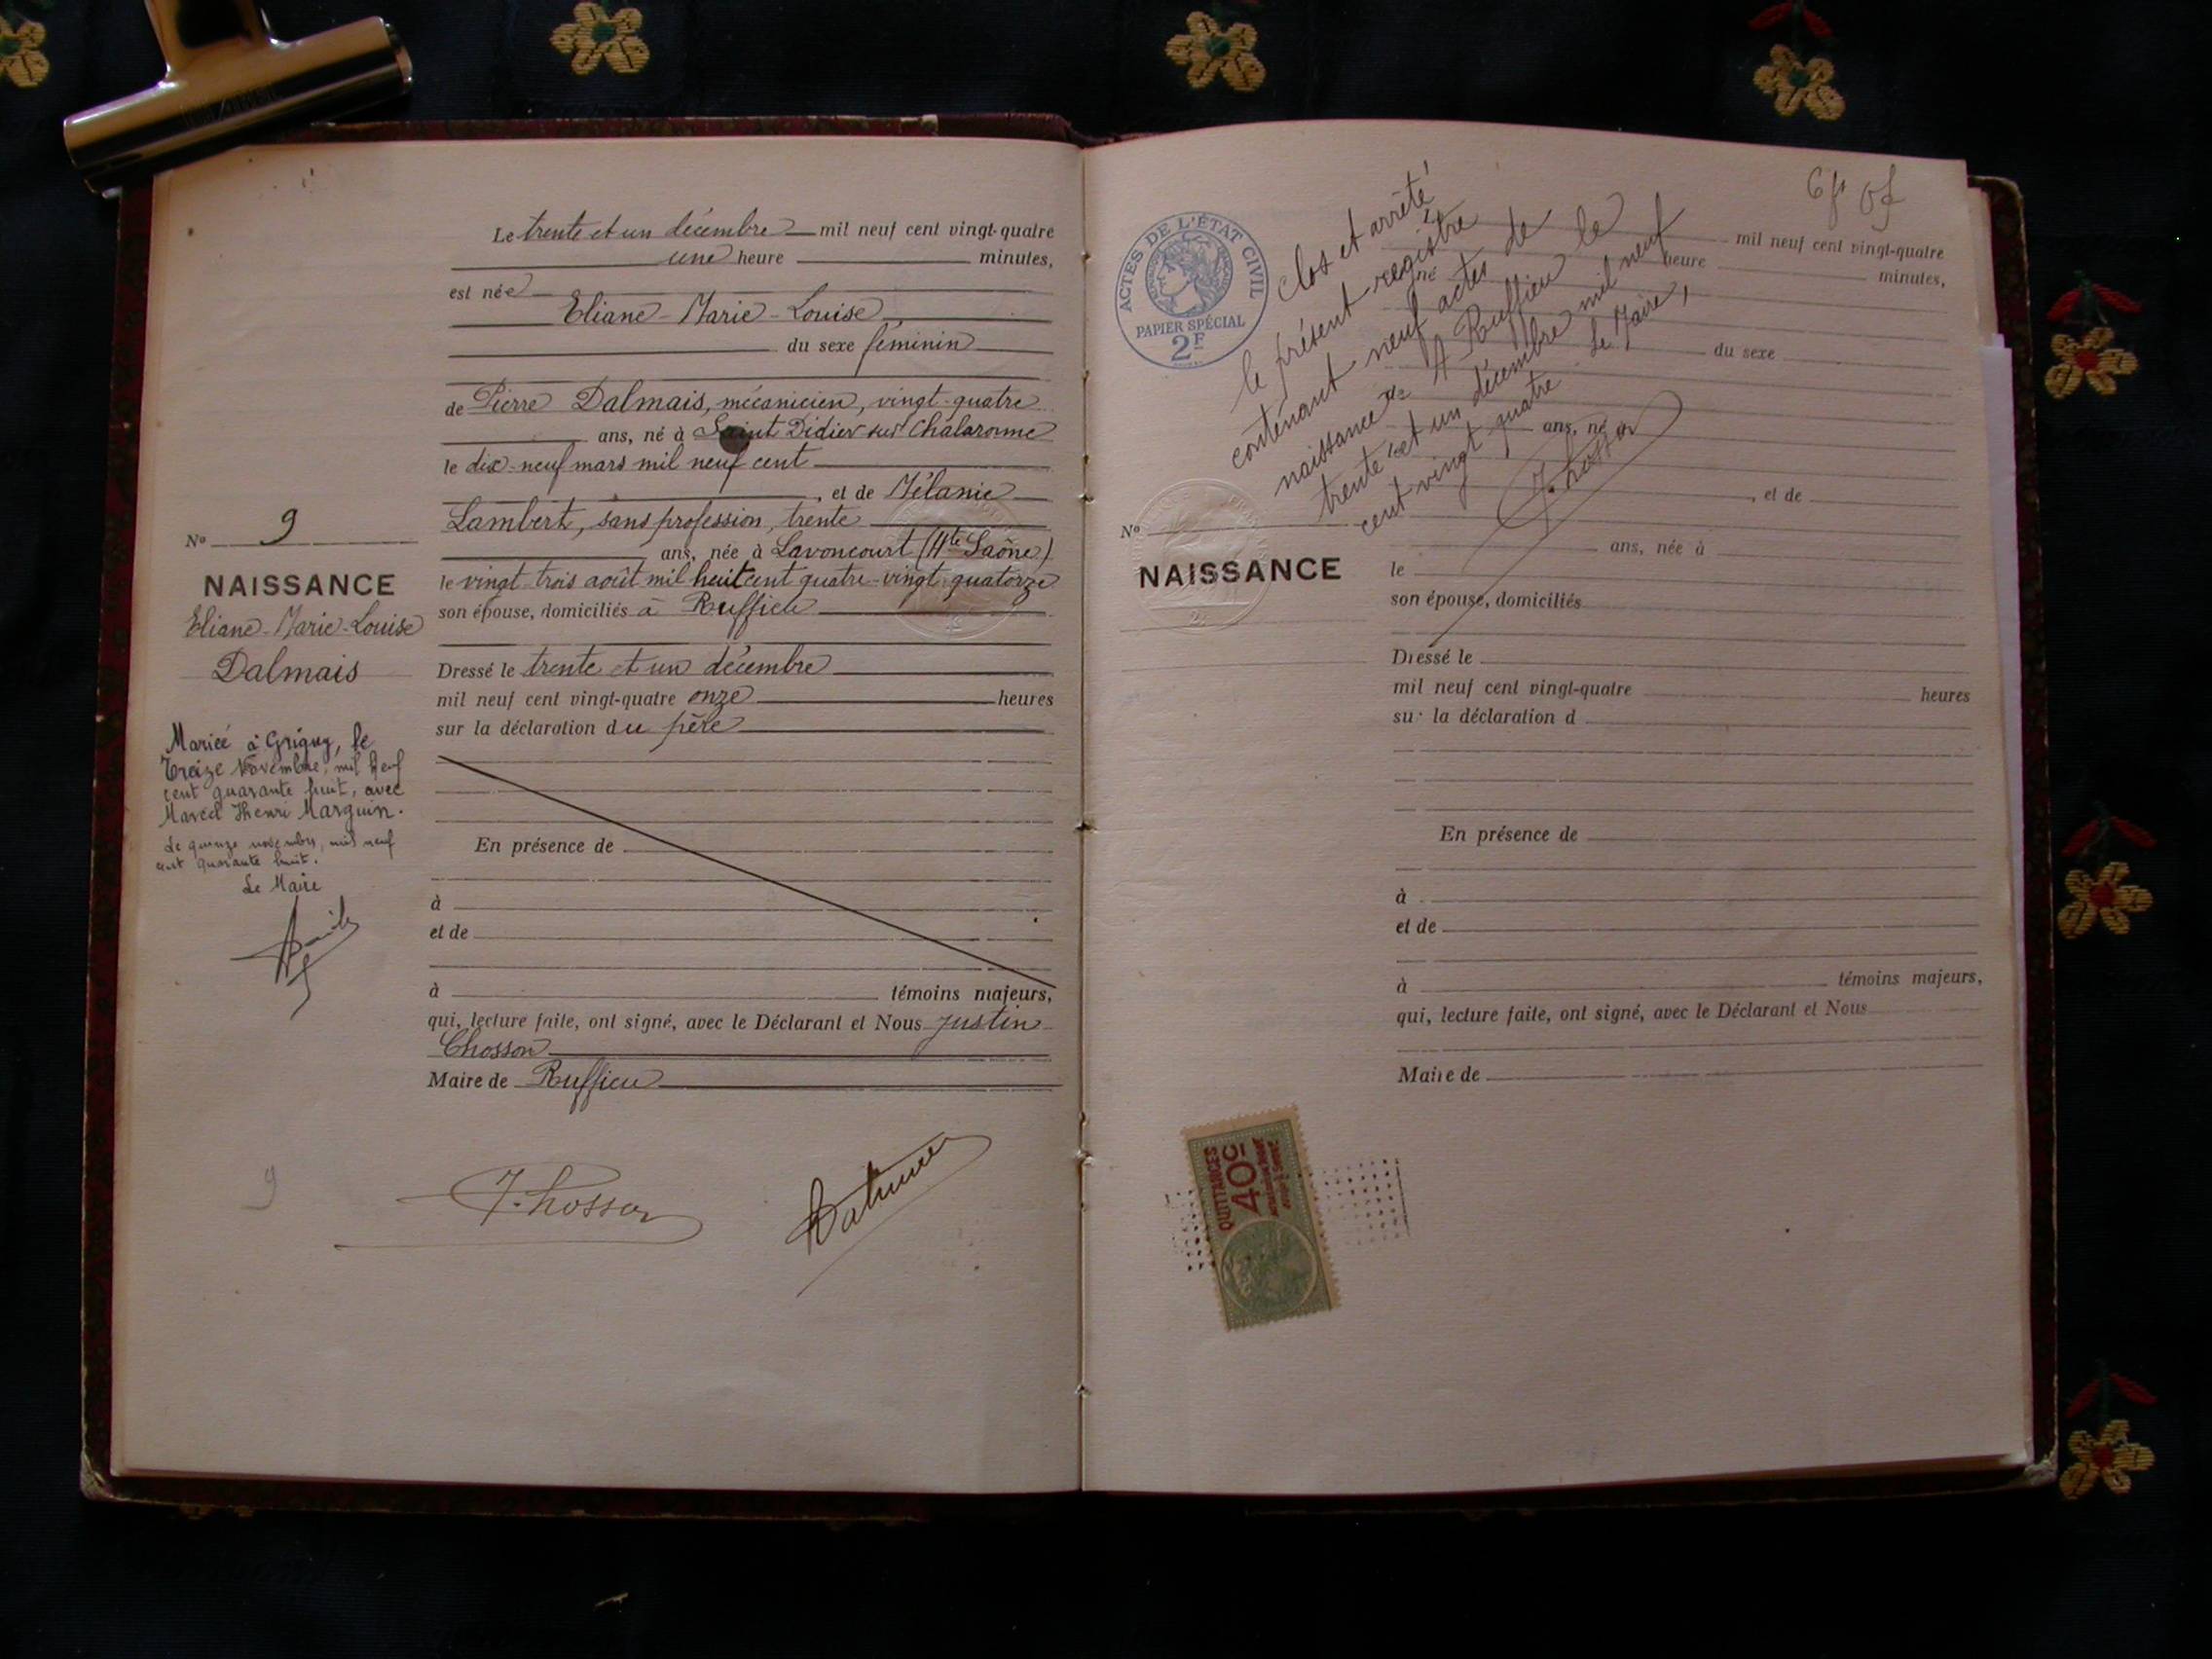 Le trente et un décembre mil neuf cent vingt-quatre
une heure minutes,
est née
Eliane - Marie - Louise
du sexe féminin
de Pierre Dalmais, mécanicien, vingt-quatre
ans, né à Saint Didier sur Chalaronne
le dix-neuf mars mil neuf cent
, et de Mélanie
Lambert, sans profession, trente
ans, née à Lavoncourt (Hte Saône)
le vingt trois août mil huit cent quatre-vingt-quatorze
son épouse, domiciliés à Ruffieu
Dressé le trente et un décembre
mil neuf cent vingt-quatre onze heures
sur la déclaration du père
En présence de
à
et de
à témoins majeurs,
qui, lecture faite, ont signé, avec le Déclarant et Nous Justin
Chosson
Maire de Ruffieu
J. Chosson
Dalmais
No 9
NAISSANCE
Eliane - Marie - Louise
Dalmais
Mariée à Grigny, le
treize Novembre, mil neuf
cent quarante huit, avec
Marcel Henri Marguin.
Le quinze novembre, mil neuf
cent quarante huit.
Le Maire
9
ACTES DE L'ÉTAT CIVIL
PAPIER SPÉCIAL
2F
Clos et arrêté
le présent registre
contenant neuf actes de
naissance A Ruffieu le
trente et un décembre mil neuf
cent vingt quatre Le Maire,
J. Chosson
mil neuf cent vingt-quatre
heure minutes,
né
du sexe
ans, né à
, et de
ans, née à
le
son épouse, domiciliés
Dressé le
mil neuf cent vingt-quatre heures
sur la déclaration d
En présence de
à
et de
à témoins majeurs,
qui, lecture faite, ont signé, avec le Déclarant et Nous
Maire de
No
NAISSANCE
QUITTANCES
40c